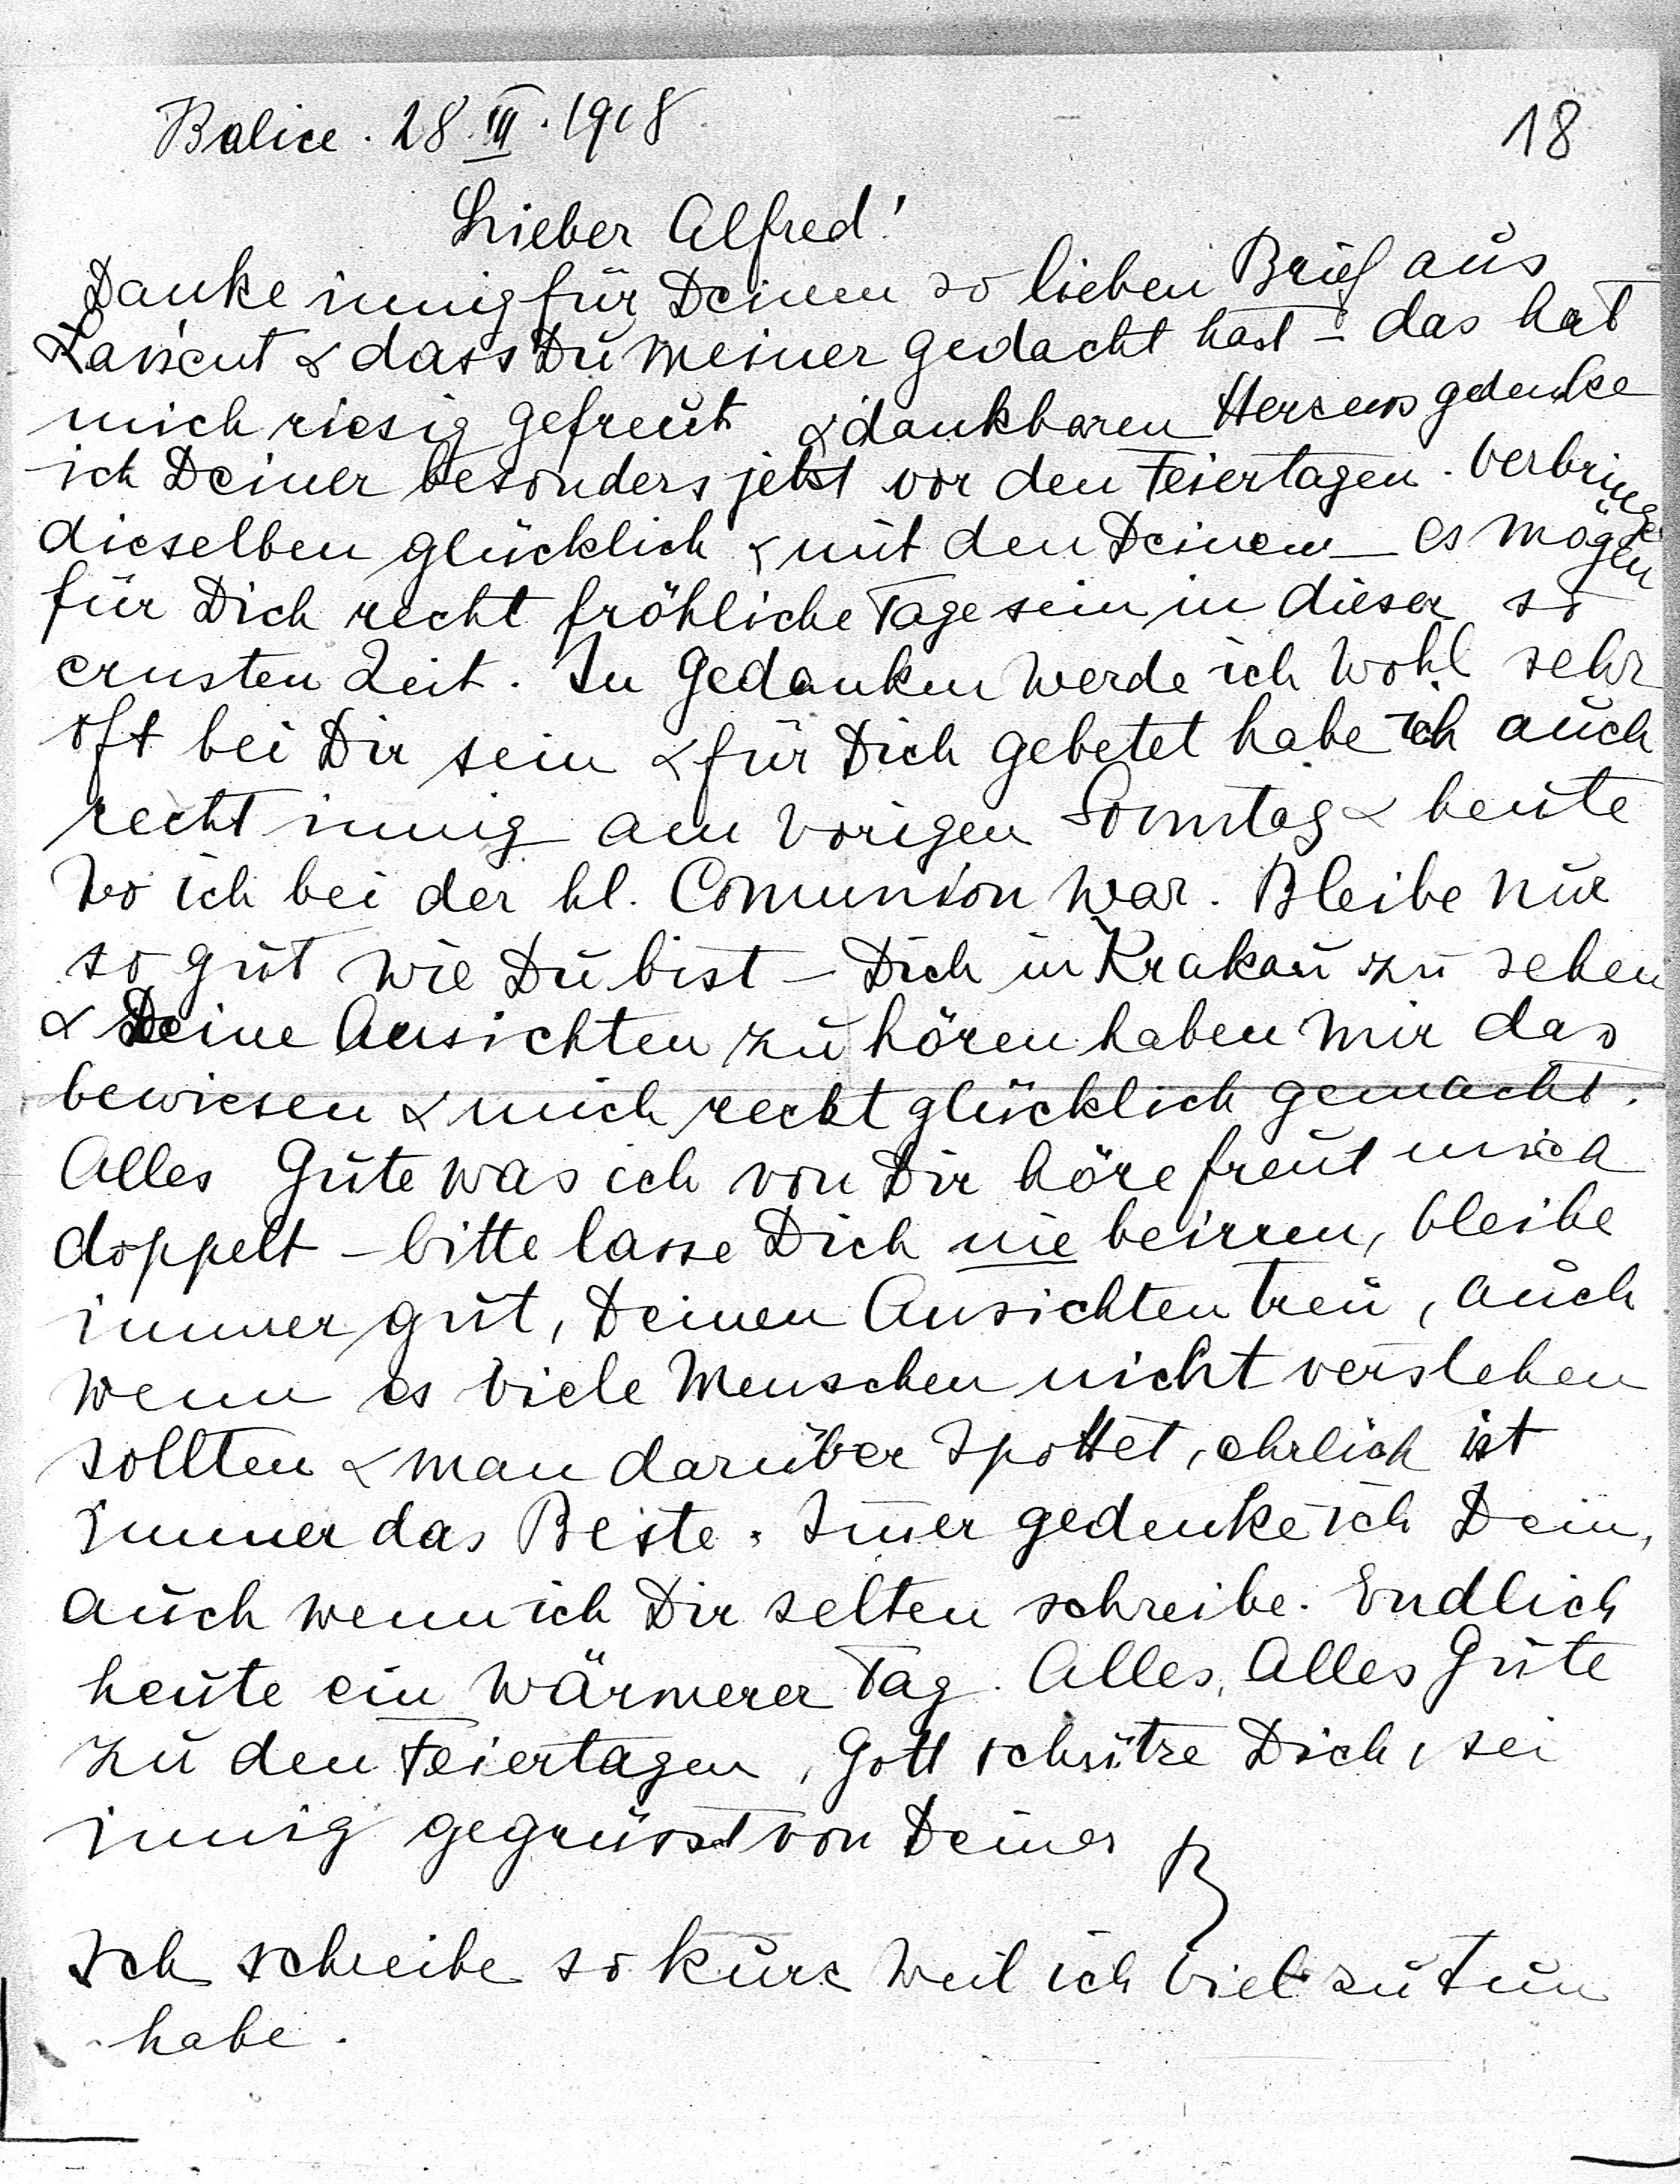 Balice. 28. III. 1918
18
Lieber Alfred!
Danke innig für Deinen so lieben Brief aus
Łańcut & dass Du meiner gedacht hast – das hat
mich riesig gefreut & dankbaren Herzens gedenke
ich Deiner besonders jetzt vor den Feiertagen. Verbringe
dieselben glücklich & mit den Deinen – es mögen
für Dich recht fröhliche Tage sein in dieser so
ernsten Zeit. In Gedanken werde ich wohl sehr
oft bei Dir sein & für Dich gebetet habe ich auch
recht innig am vorigen Sonntag & heute
wo ich bei der hl. Comunion war. Bleibe nur
so gut wie Du bist – Dich in Krakau zu sehen
& Deine Ansichten zu hören haben mir das
bewiesen & mich recht glücklich gemacht.
Alles Gute was ich von Dir höre freut mich
doppelt – bitte lasse Dich nie beirren, bleibe
immer gut, Deinen Ansichten treu, auch
wenn es viele Menschen nicht verstehen
sollten & man darüber spottet, ehrlich ist
immer das Beste. Im̅er gedenke ich Dein,
auch wenn ich Dir selten schreibe. Endlich
heute ein wärmerer Tag. Alles, Alles Gute
zu den Feiertagen, Gott schütze Dich, sei
innig gegrüsst von Deiner
Ich schreibe so kurz weil ich viel zu tun
habe.